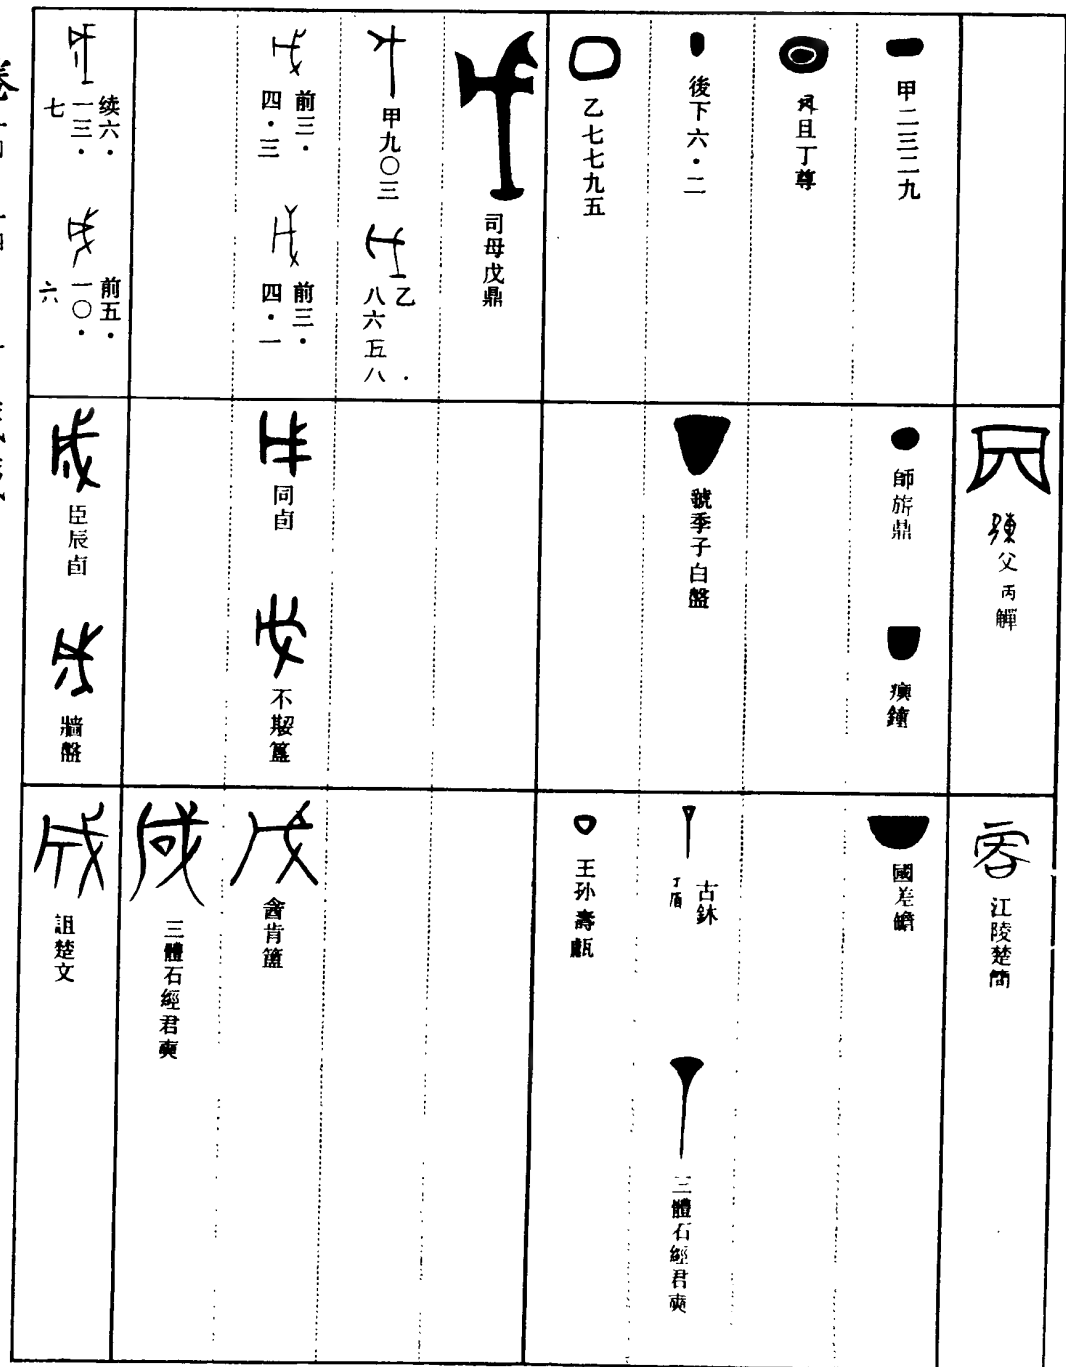 甲二三二九
且丁尊
後下六·二
乙七七九五
司母戊鼎
甲九〇三
乙八六五八
前三·四·三
前三·四·一
续六·一三·七
前五·一〇·六
父丙觶
師旂鼎
𤼈鐘
虢季子白盤
同卣
不㝬簋
臣辰卣
牆盤
江陵楚簡
國差𦉜
古鉢
丁盾
三體石經君奭
王孙壽甗
酓肯簠
三體石經君奭
詛楚文